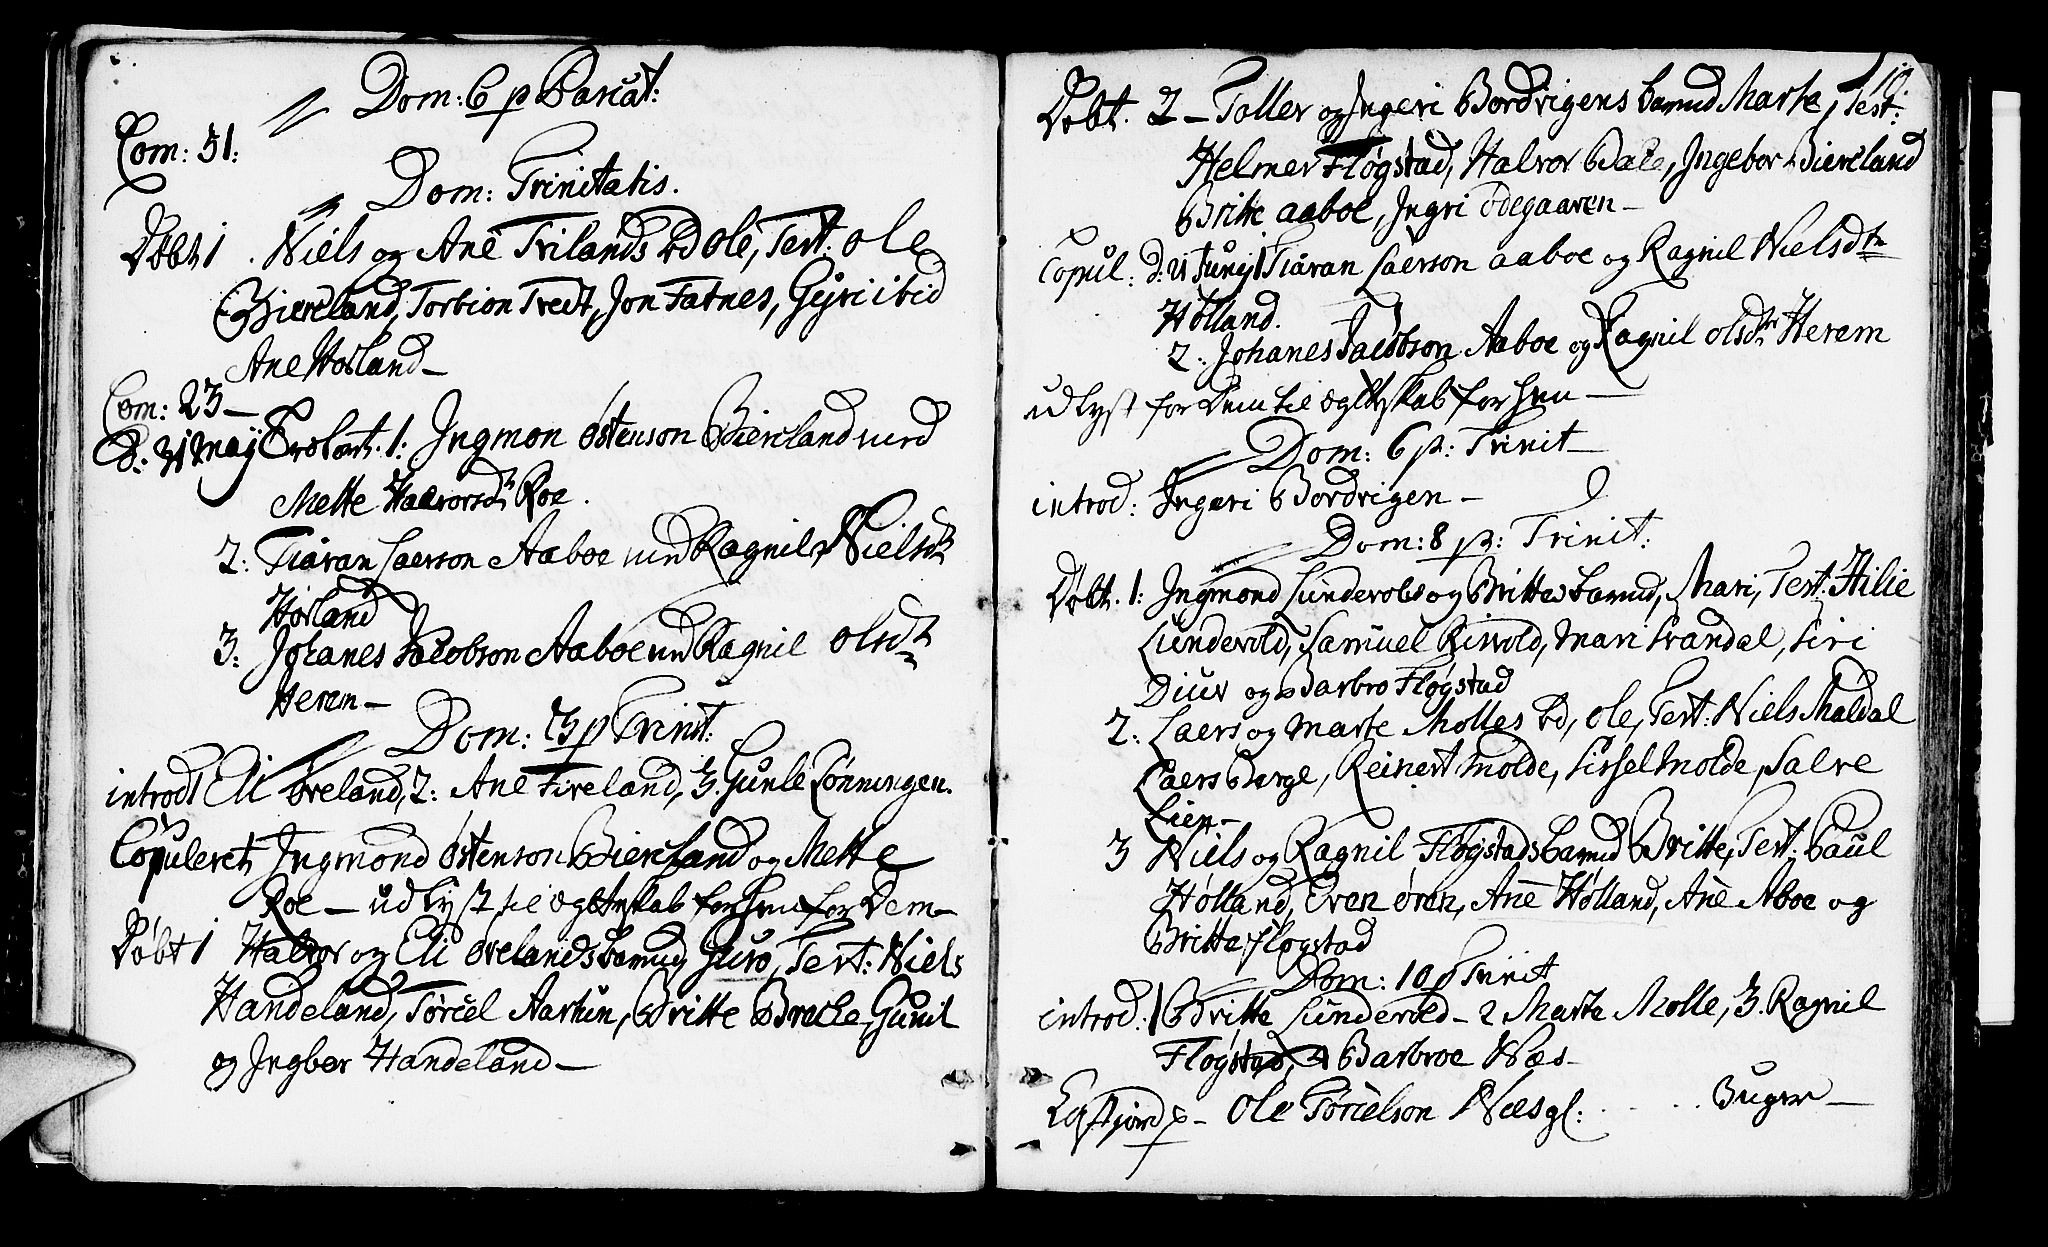 Dom: 6 p Pascat:
Com: 51:
Dom: Trinitatis.
Døbt 1. Niels og Ane Trilands bd Ole, Test: Ole
Biereland, Torbion Tredt, Jon Fatnes, Gyri ibid
Ane Hosland
Com: 23 —
D: 31 Maÿ Trolovt. 1: Ingmon Østenson Biereland med
Mette Halvorsdr Roe.
2: Tiäran Laerson Aaboe med Ragnil Nielsdr
Høland
3: Johanes Jacobson Aaboe med Ragnil Olsdr
Herem —
Dom: 3 p Trinit:
introd 1 Eli Øveland, 2: Ane Tireland, 3. Gunle Lønningen.
Copuleret Ingmond Østenson Biereland og Mette
Roe — udlyst til Ægteskab for hen for Dem —
Døbt 1 Halvor og Eli Øvelands barn Guro, Test: Niels
Handeland, Torcel Aarhun, Britte Brecke, Gunil
og Ingbor Handeland —
10.
Døbt. 2 — Toller og Ingeri Bordvigens barn Marte, Test:
Helmer Fløgstad, Halvor Dale, Ingebor Biereland
Britte Aaboe, Ingri Ødegaaren —
Copul: d: 21 Junÿ 1 Tiäran Laerson Aaboe og Ragnil Nielsdtr
Hølland.
2: Johanes Jacobson Aaboe og Ragnil Olsdtr Herem
udlyst for Dem til Ægteskab for hen —
Dom: 6 p: Trinit —
introd: Ingeri Bordvigen —
Dom: 8 p: Trinit:
Døbt. 1: Ingmond Lundevolds og Brittes barn, Mari, Test: Hilie
Lundevold, Samuel Risvold, Mari Svandal, Siri
Diuv og Barbro Fløgstad
2: Laers og Marte Molles bd, Ole, Test: Niels Maldal
Laers Berge, Reinert Molde, Sissel Molde, Salve
Lien —
3 Niels og Ragnil Fløgstads barn Britte, Test: Paul
Hølland, Even Øren, Ane Hølland, Ane Aboe og
Britta Fløgstad
Dom: 10 p Trinit
introd: 1 Britte Lundevold — 2 Marte Molle, 3. Ragnil
Fløgstad, 4 Barbroe Næs —
Ole Torcelson Næs gl: . . . Buger —